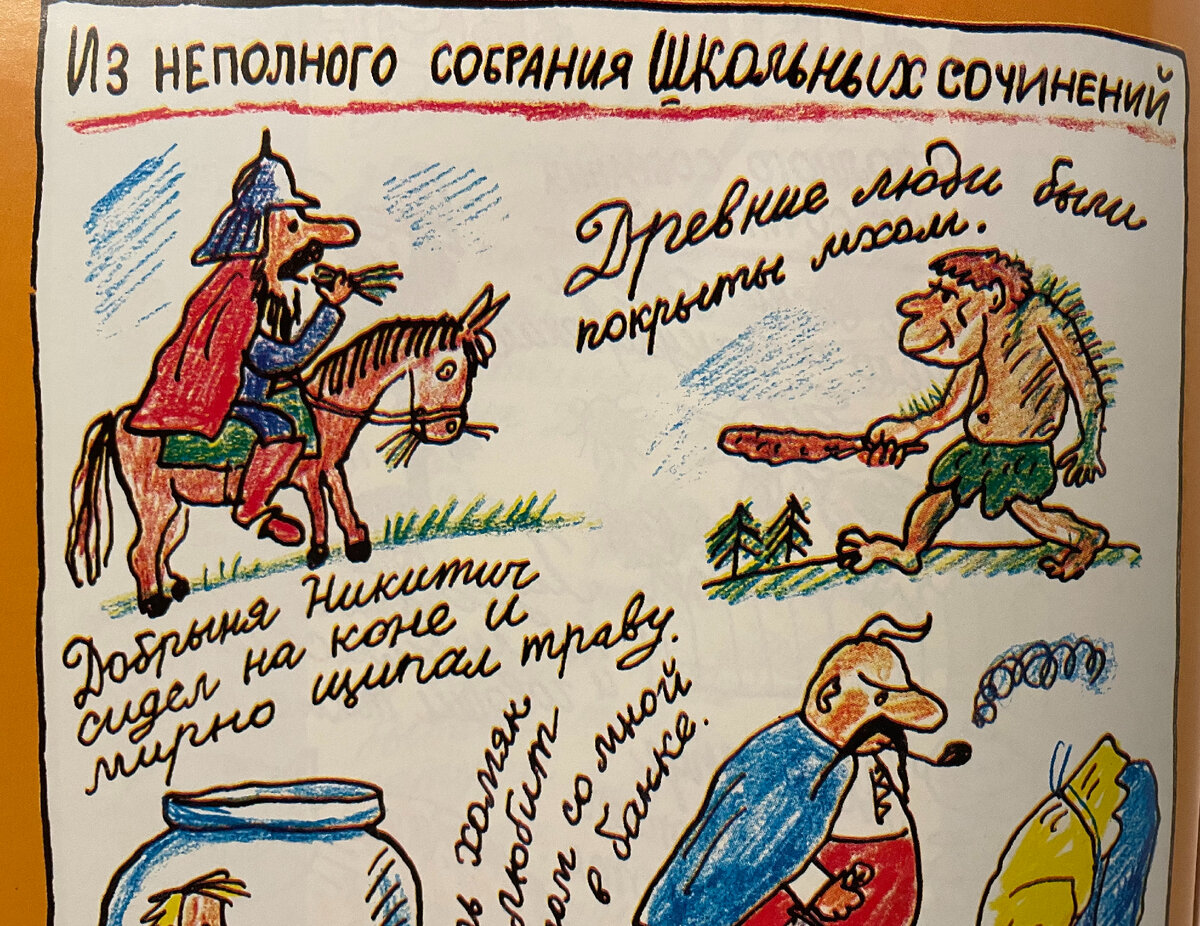 Из неполного собрания школьных сочинений
Древние люди были
покрыты мхом.
Добрыня Никитич
сидел на коне и
мирно щипал траву.
хомяк
любит
со мной
в банке.